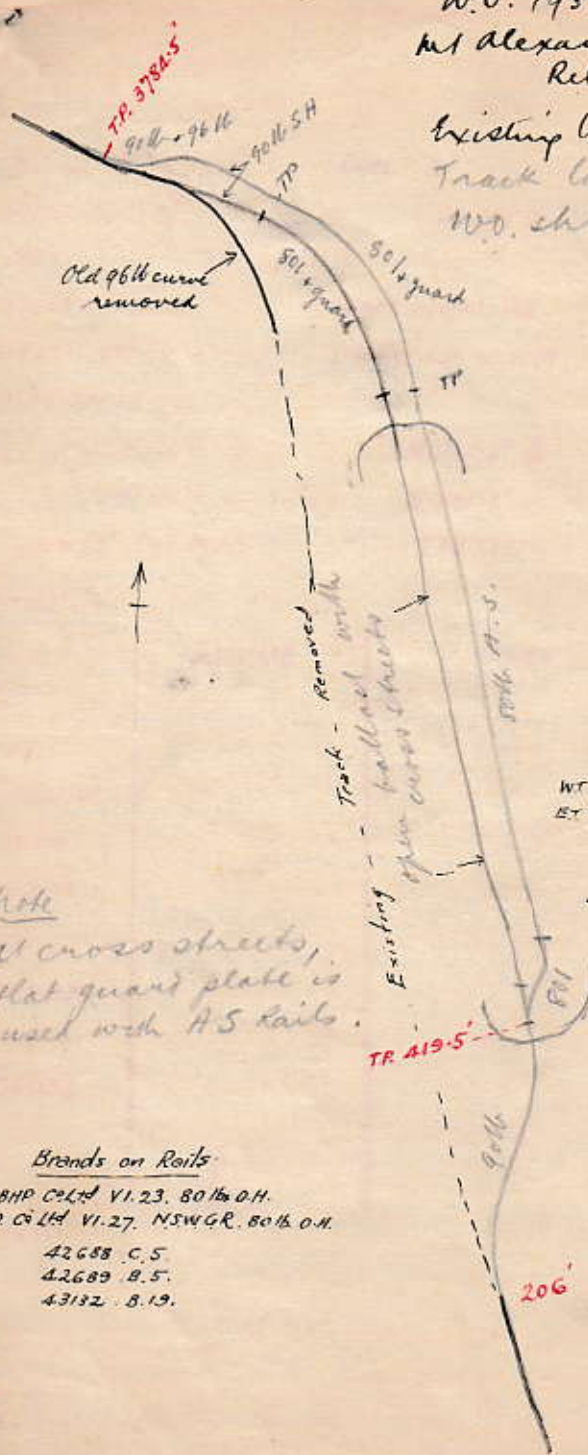 W.O. 793
Mt Alexa
Existing
Track
W.O.
T.P. 3784·5'
90lb + 96lb
90lb S.H
TP
80lb + guard
80lb + guard
Old 96lb curve
removed
TP
Existing - - Track - Removed
open ballast with
open cross streets
80lb A.S.
WT
ET
Note
At cross streets,
flat guard plate is
used with AS Rails.
80lb
T.P. 419·5'
90lb
Brands on Rails
BHP Co Ltd VI.23. 80 lbs O.H.
Co Ltd VI.27. NSWGR. 80 lb O.H.
42688 C.5.
42689 B.5.
43132 B.19.
206'